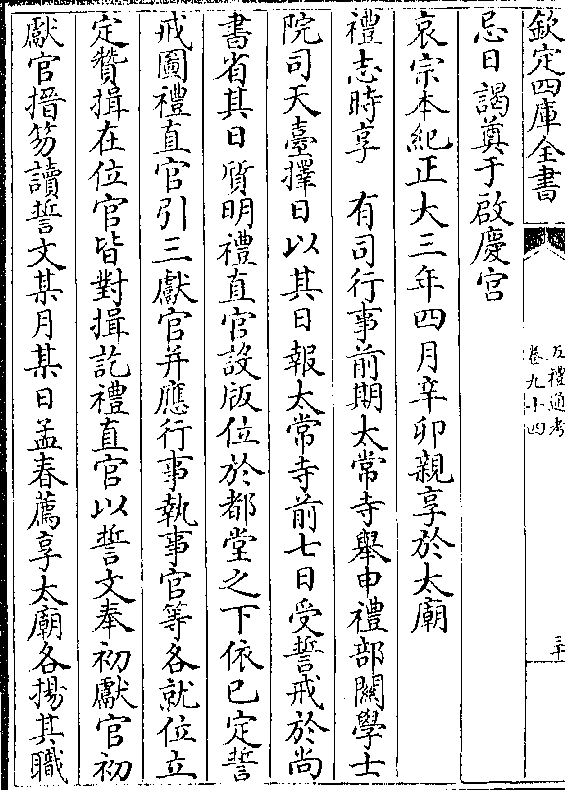 欽定四庫全書
五禮通考
卷九十四
三十
忌日謁奠于啟慶宮
哀宗本紀正大三年四月辛卯親享於太廟
禮志時享　有司行事前期太常寺舉申禮部關學士
院司天臺擇日以其日報太常寺前七日受誓戒於尚
書省其日質明禮直官設版位於都堂之下依已定誓
戒圖禮直官引三獻官并應行事執事官等各就位立
定贊揖在位官皆對揖訖禮直官以誓文奉初獻官初
獻官搢笏讀誓文某月某日孟春薦享太廟各揚其職